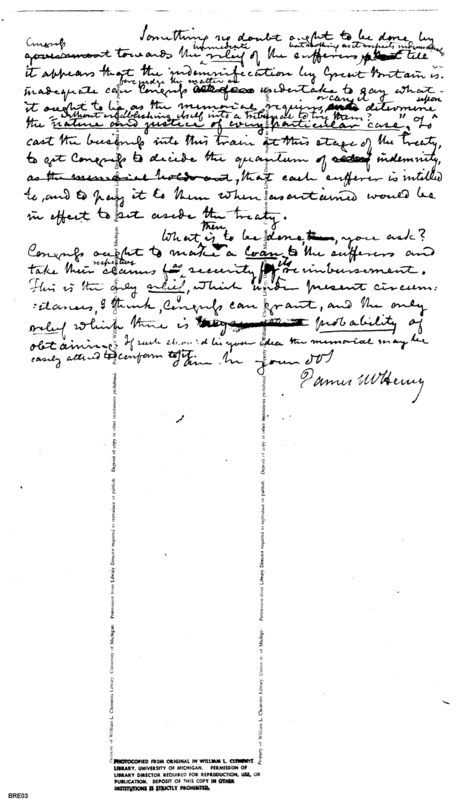 Something no doubt ought to be done by
Congress
government towards the immediate relief of the sufferers, but till
it appears that the indemnification by Great Britain is
inadequate can Congress undertake to pay what
or judge the matter is
it ought to be, as the memorial requires, or can it determine upon
without establishing itself into a tribunal to try them?
the "nature and justice of every particular case," To
cast the business into this train at this stage of the treaty,
to get Congress to decide the quantum of indemnity,
as the memorial holds out, that each sufferer is intitled
to, and to pay it to them when ascertained would be
in effect to set aside the treaty.
What is then to be done, you ask?
Congress ought to make a loan to the sufferers and
take their respective claims as security for its reimbursement.
This is the only relief, which under present circum:
:stances, I think, Congress can grant, and the only
relief which there is probability of
obtaining. If such should be your idea the memorial may be
easily altered to conform to it.
I am Dr Sir your
James McHenry
Property of William L. Clements Library University of Michigan. Permission from Library Director required to reproduce or publish. Deposit of copy in other institutions prohibited.
PHOTOCOPIED FROM ORIGINAL IN WILLIAM L. CLEMENTS
LIBRARY, UNIVERSITY OF MICHIGAN. PERMISSION OF
LIBRARY DIRECTOR REQUIRED FOR REPRODUCTION, USE, OR
PUBLICATION. DEPOSIT OF THIS COPY IN OTHER
INSTITUTIONS IS STRICTLY PROHIBITED.
BRE03